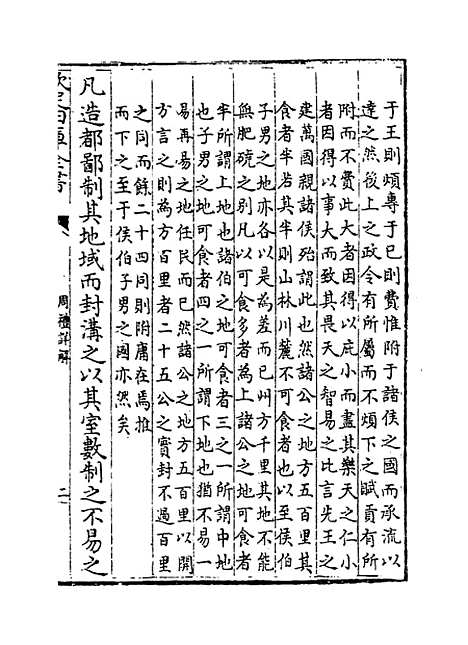 于王則煩專于已則費惟附于諸侯之國而承流以
達之然後上之政令有所屬而不煩下之賦貢有所
附而不費此大者因得以庇小而盡其樂天之仁小
者因得以事大而致其畏天之智易之比言先王之
建萬國親諸侯殆謂此也然諸公之地方五百里其
食者半若其半則山林川麓不可食者也以至侯伯
子男之地亦各以是為差而已州方千里其地不能
無肥磽之别凡以可食多者為上諸公之地可食者
半所謂上地也諸伯之地可食者三之一所謂中地
也子男之地可食者四之一所謂下地也猶不易一
易再易之地任民而已然諸公之地方五百里以開
方言之則為方百里者二十五公之實封不過百里
之同而餘二十四同則附庸在焉推
而下之至于侯伯子男之國亦然矣
凡造都鄙制其地域而封溝之以其室數制之不易之
欽定四庫全書
周禮詳解
二